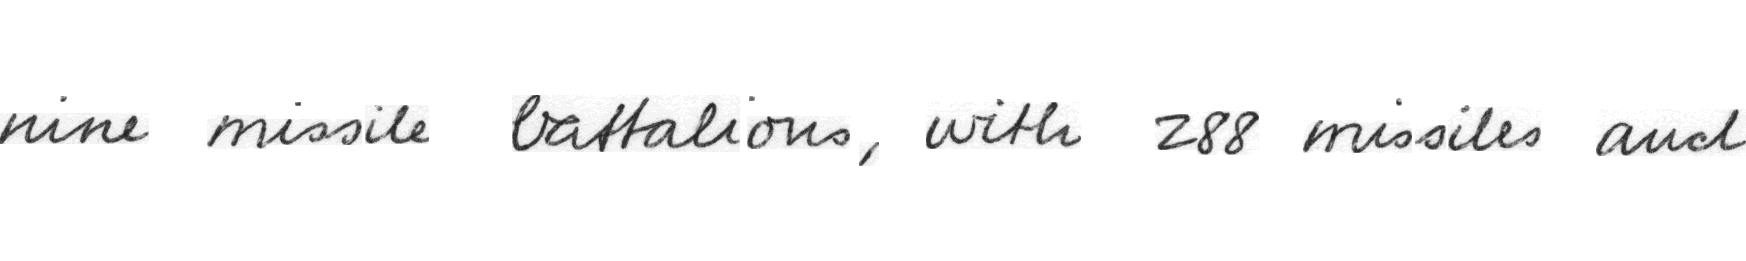 nine missile battalions, with 288 missiles and